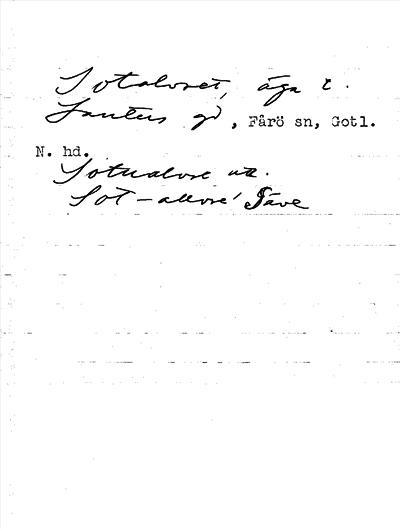 Sotalvret, äga i
Lauters gd, Fårö sn, Gotl.
N. hd.
Sotnalvre utt.
Sot-allvre' Säve